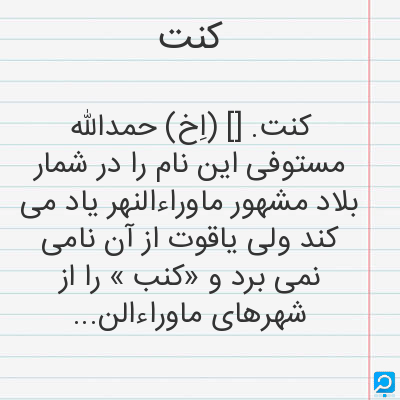 کنت
کنت. [] (اِخ) حمدالله
مستوفی این نام را در شمار
بلاد مشهور ماوراءالنهر یاد می
کند ولی یاقوت از آن نامی
نمی برد و «کنب » را از
شهرهای ماوراءالن...